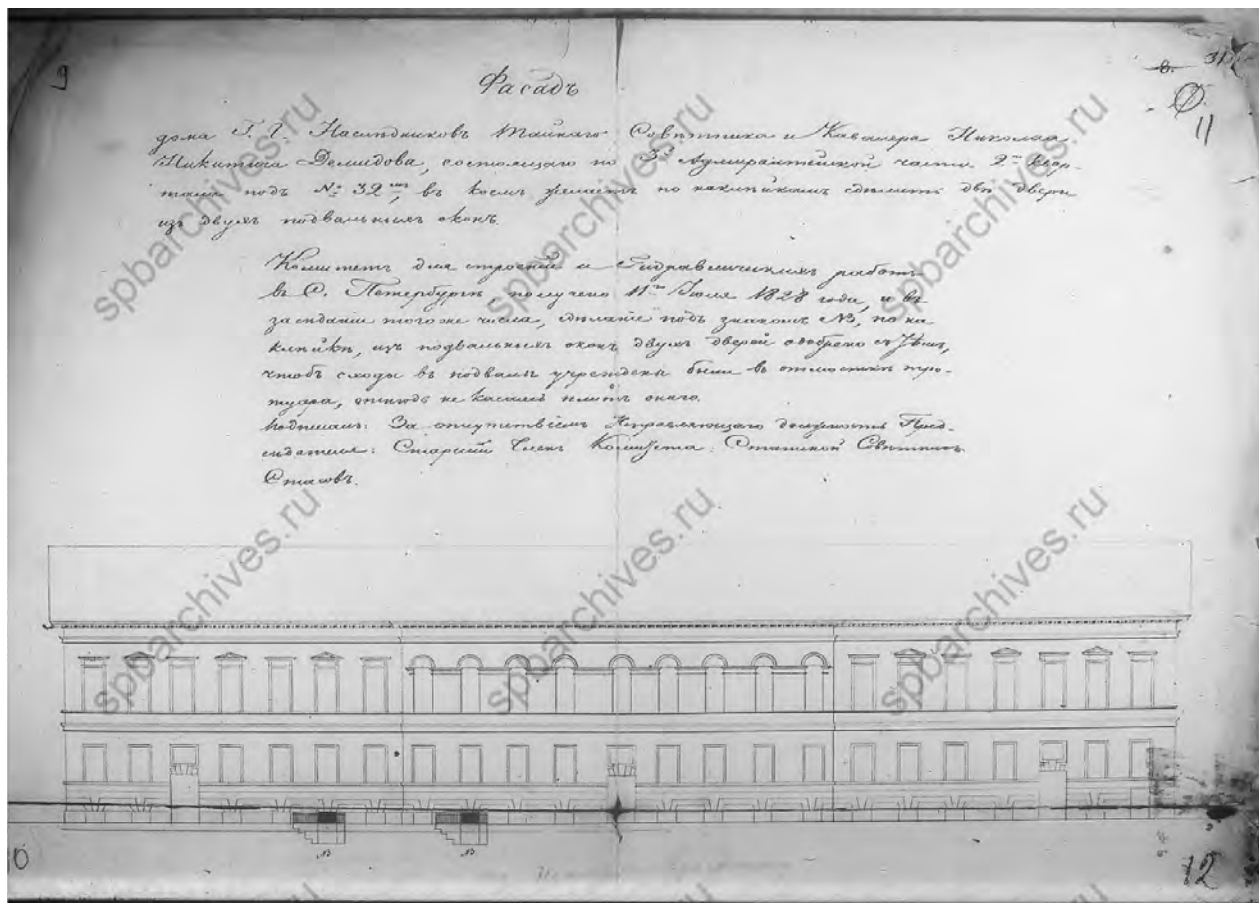 9
8. 31
Ф.
11
Фасадъ
дома Г. Г. Наслѣдниковъ Тайнаго Совѣтника и Кавалера Николая
Никитича Демидова, состоящаго по 3й Адмиралтейской части 2го квар-
тала подъ № 32мъ, въ коемъ желаетъ по наклейкамъ сдѣлать двѣ двери
изъ двухъ подвальныхъ оконъ.
Комитетъ для строеній и Гидравлическихъ работъ
въ С. Петербургѣ, получено 11го Іюля 1828 года, и въ
засѣданіи того же числа, сдѣланіе подъ знакомъ NB, по на
клейкѣ, изъ подвальныхъ оконъ двухъ дверей одобрено съ тѣмъ,
чтобъ сходы въ подвалы учреждены были въ отмосткѣ тро-
туара, отнюдь не касаясь плитъ онаго.
Подписалъ: За отсутствіемъ Управляющаго должность Пред-
сѣдателя: Старшій Членъ Комитета: Статской Совѣтникъ
Стасовъ.
NB NB
10
12
spbarchives.ru
spbarchives.ru
spbarchives.ru
spbarchives.ru
spbarchives.ru
spbarchives.ru